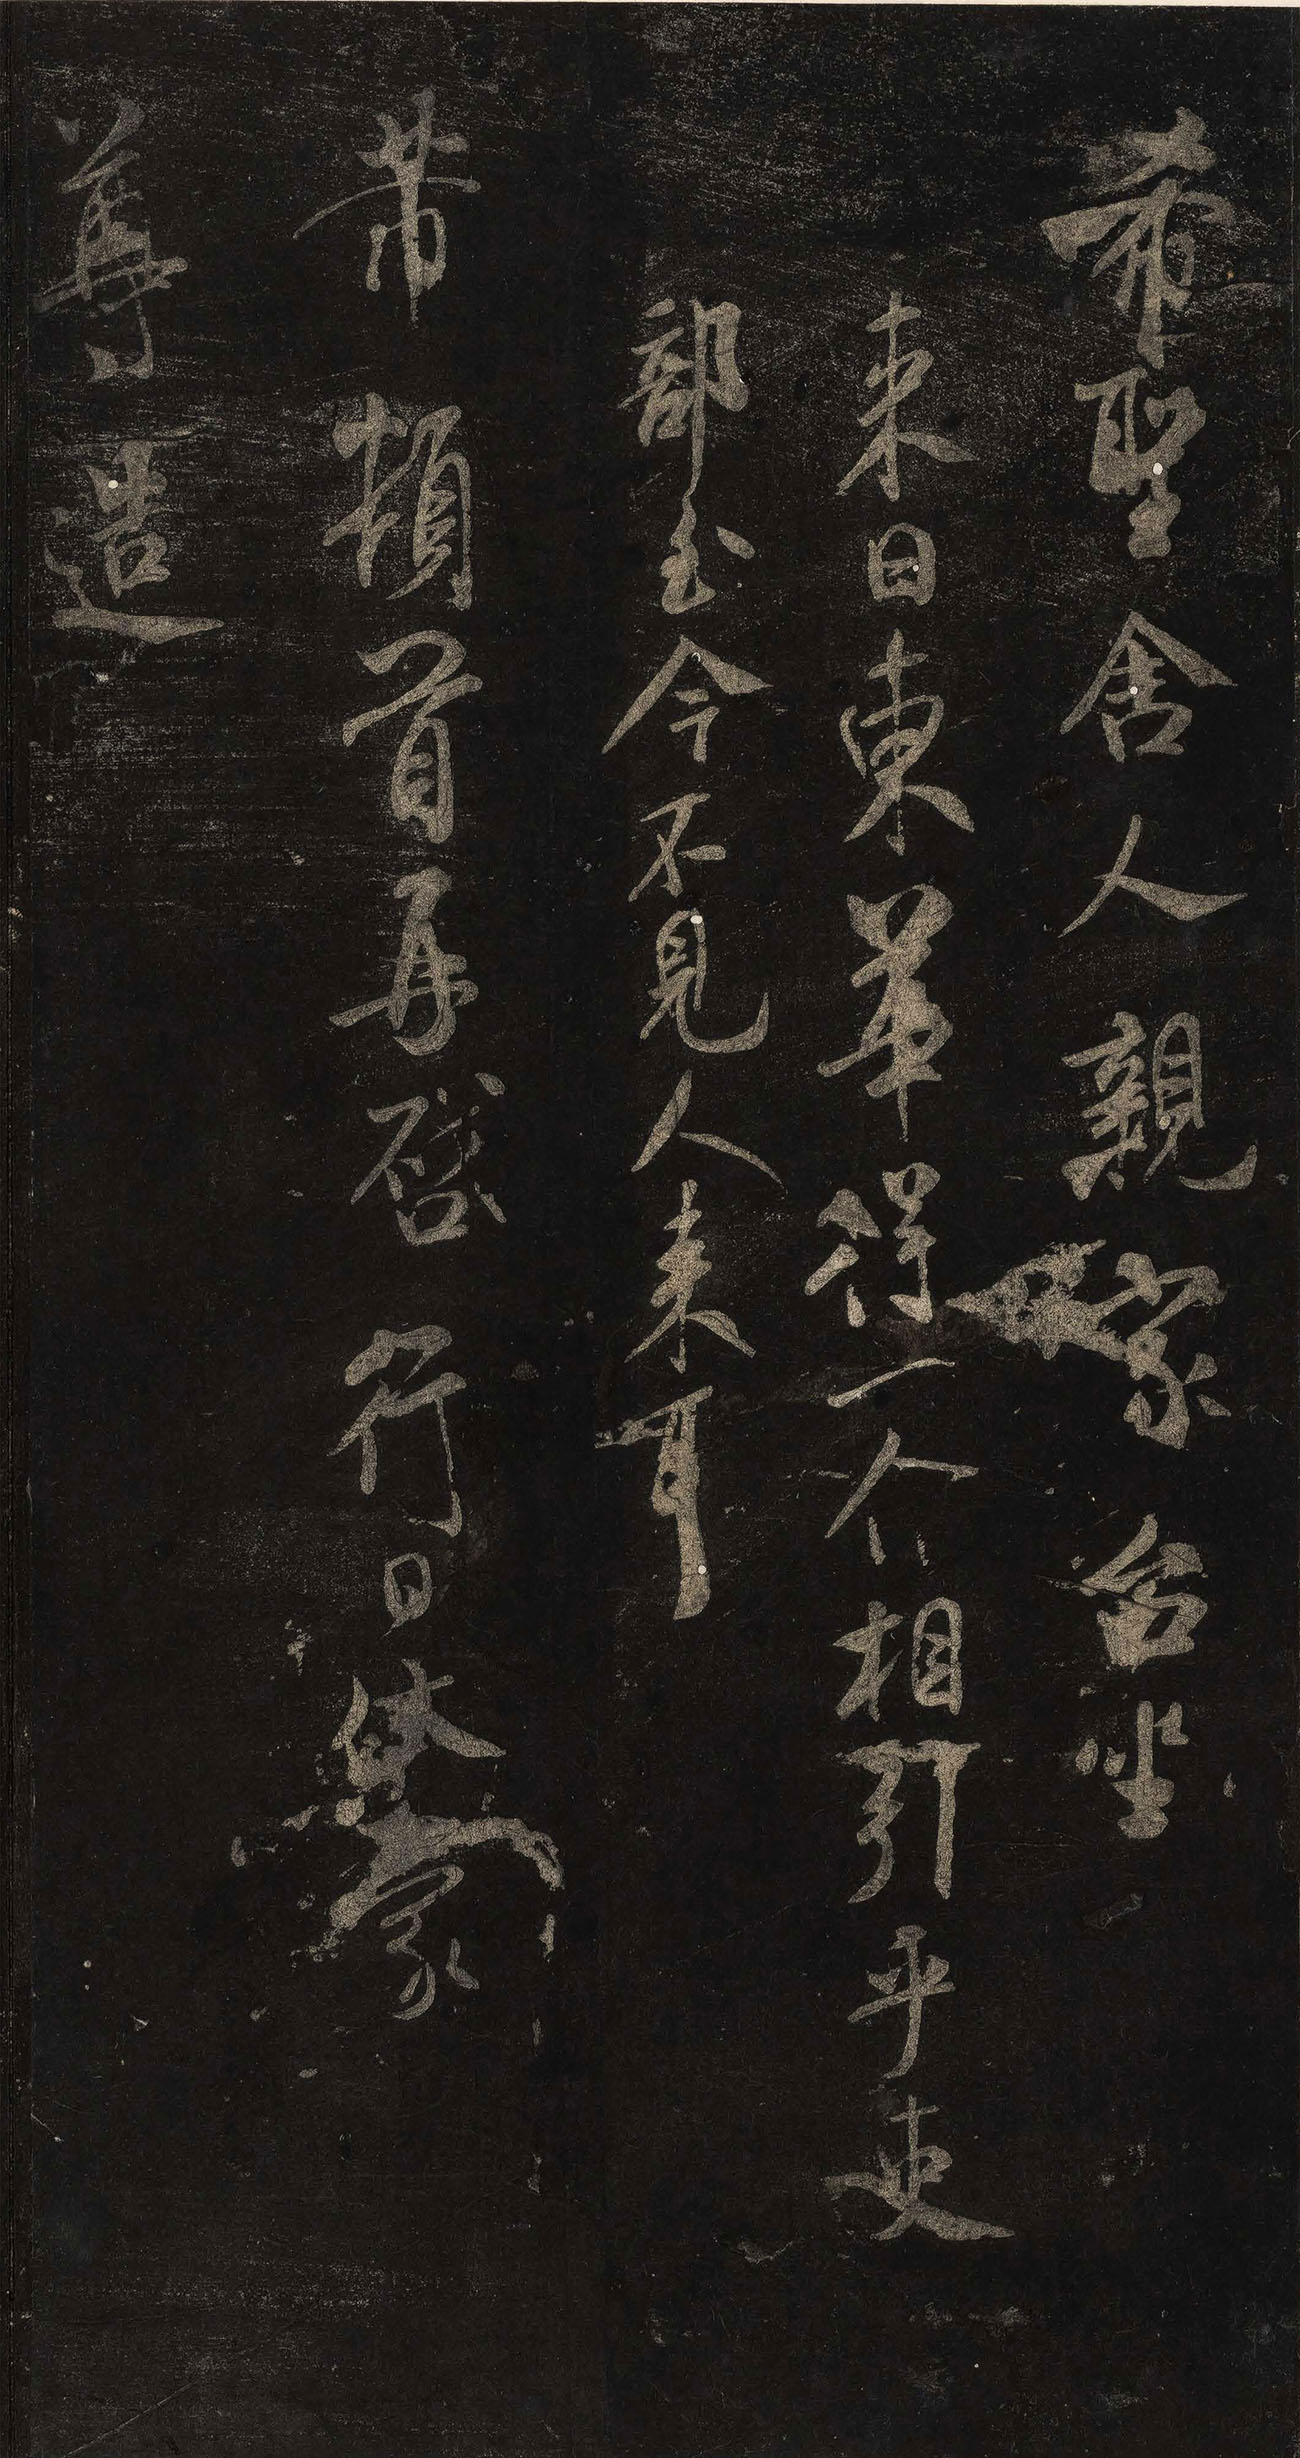 希聖舍人親家台坐
来日東華得一介相引乎吏
部至今不見人来耳
芾頓首再啓行日休蒙
尊造